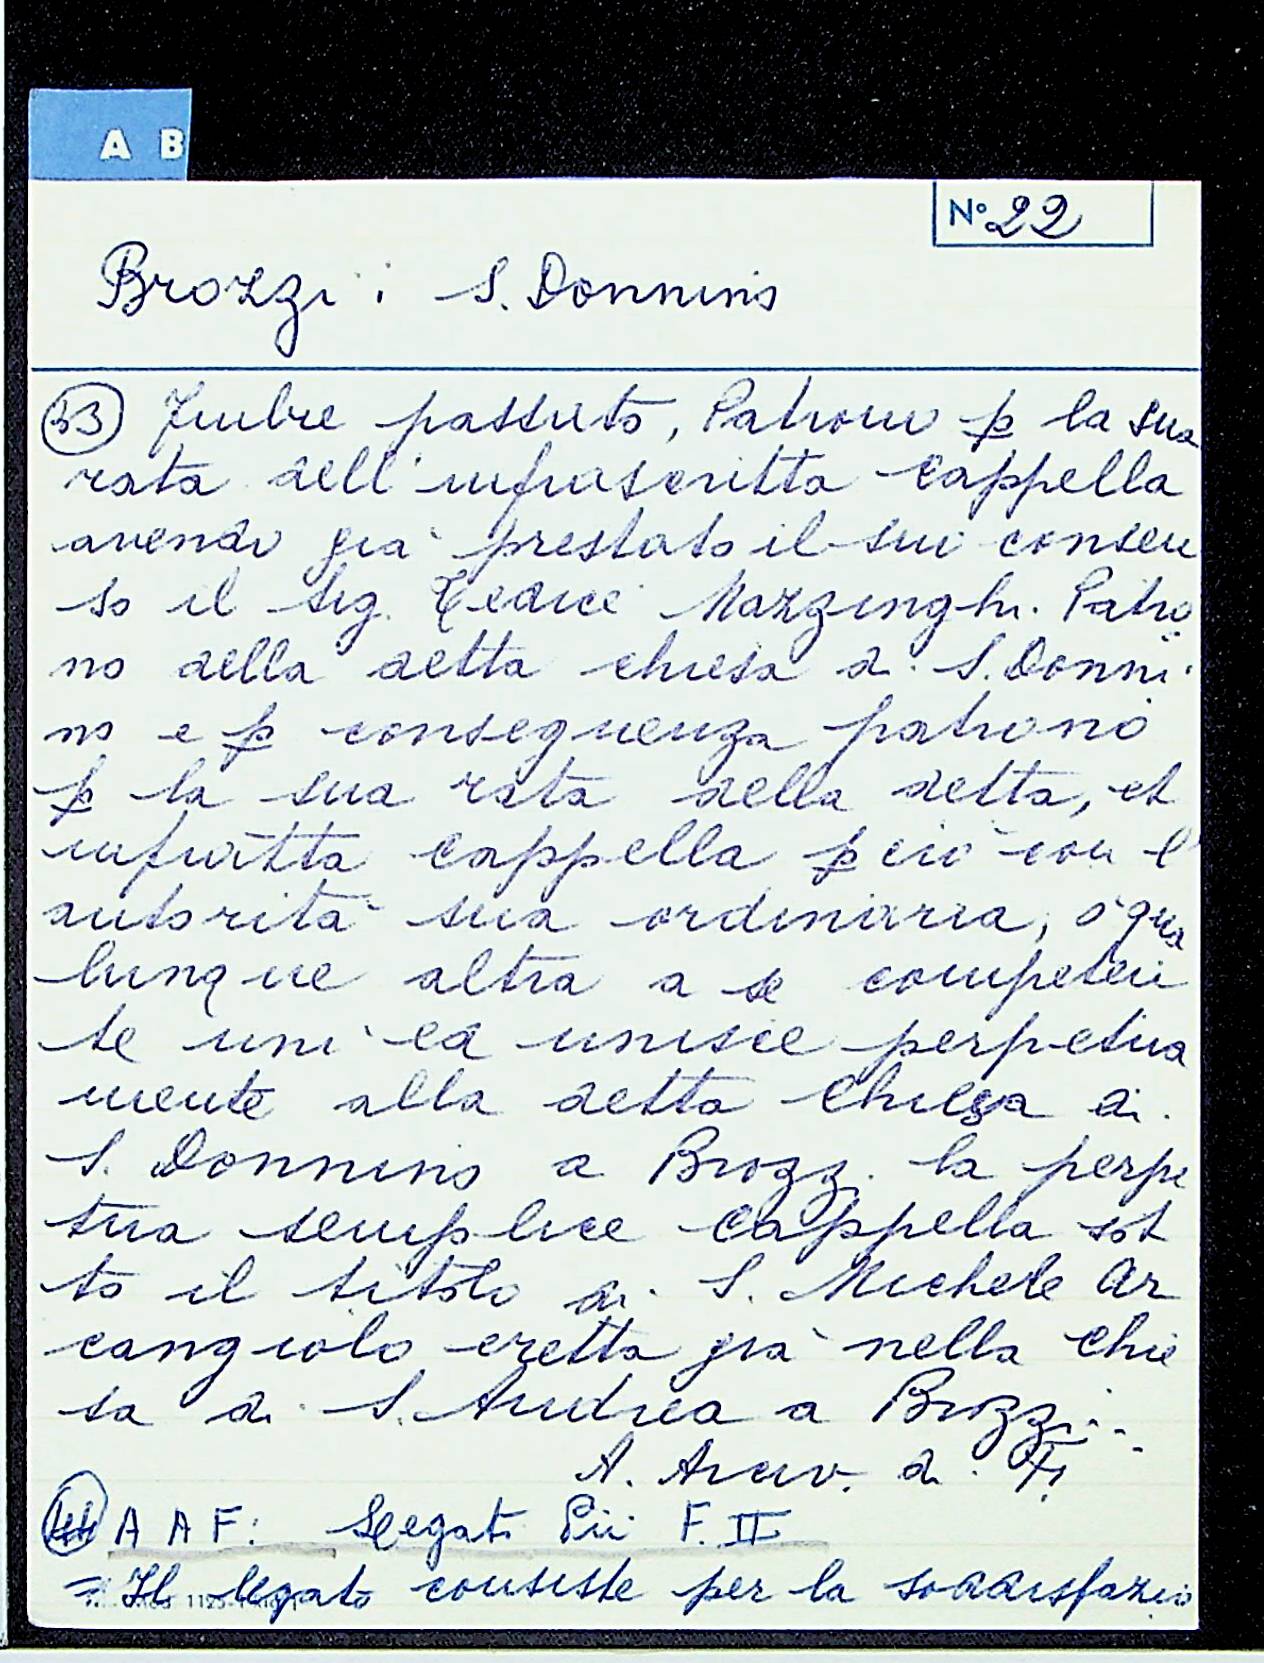 A B
N° 22
Brozzi: S. Donnino
33 9mbre passato, Patrono p la sua
rata dell'infrascritta cappella
avendo già prestato il suo consen
so il Sig. Tedice Mazzinghi Patro
no della detta chiesa di S. Donni
no e p conseguenza patrono
p la sua rata della detta, et
infratta cappella p ciò con l'
autorità sua ordinaria, o qua
lunque altra a se competen
te unì ed unisce perpetua
mente alla detta Chiesa di
S. Donnino a Brozzi la perpe
tua semplice cappella sot
to il titolo di S. Michele Ar
cangiolo eretta già nella Chie
sa di S. Andrea a Brozzi..
A. Arciv. di Fi
A A F: Legati Pii F. II
= Il legato consiste per la soddisfazio